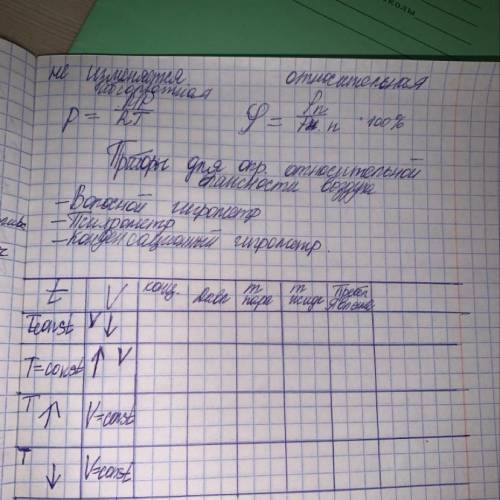 не изменяется относительная
p = RT φ = · 100%
Приборы для опр. относительной
влажности воздуха
- Волосной гигрометр
- Психрометр
- Конденсационный гигрометр.
t V конц. Давл m пара m жидк
Tconst V ↓
T=const ↑ V
T ↑ V=const
T ↓ V=const